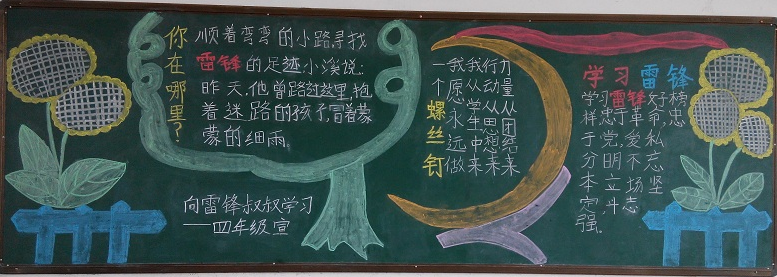 你在哪里？
顺着弯弯的小路,寻找
雷锋的足迹,小溪说:
昨天,他曾路过这里,抱
着迷路的孩子,冒着蒙
蒙的细雨。
向雷锋叔叔学习
——四年级宣
力量从团结来
行动从思想来
我从学生中来
我愿永远做
一个螺丝钉
学习雷锋
学习雷锋好榜
样,忠于革命忠
于党,爱
分明不忘
本,立场坚
定斗志
强。